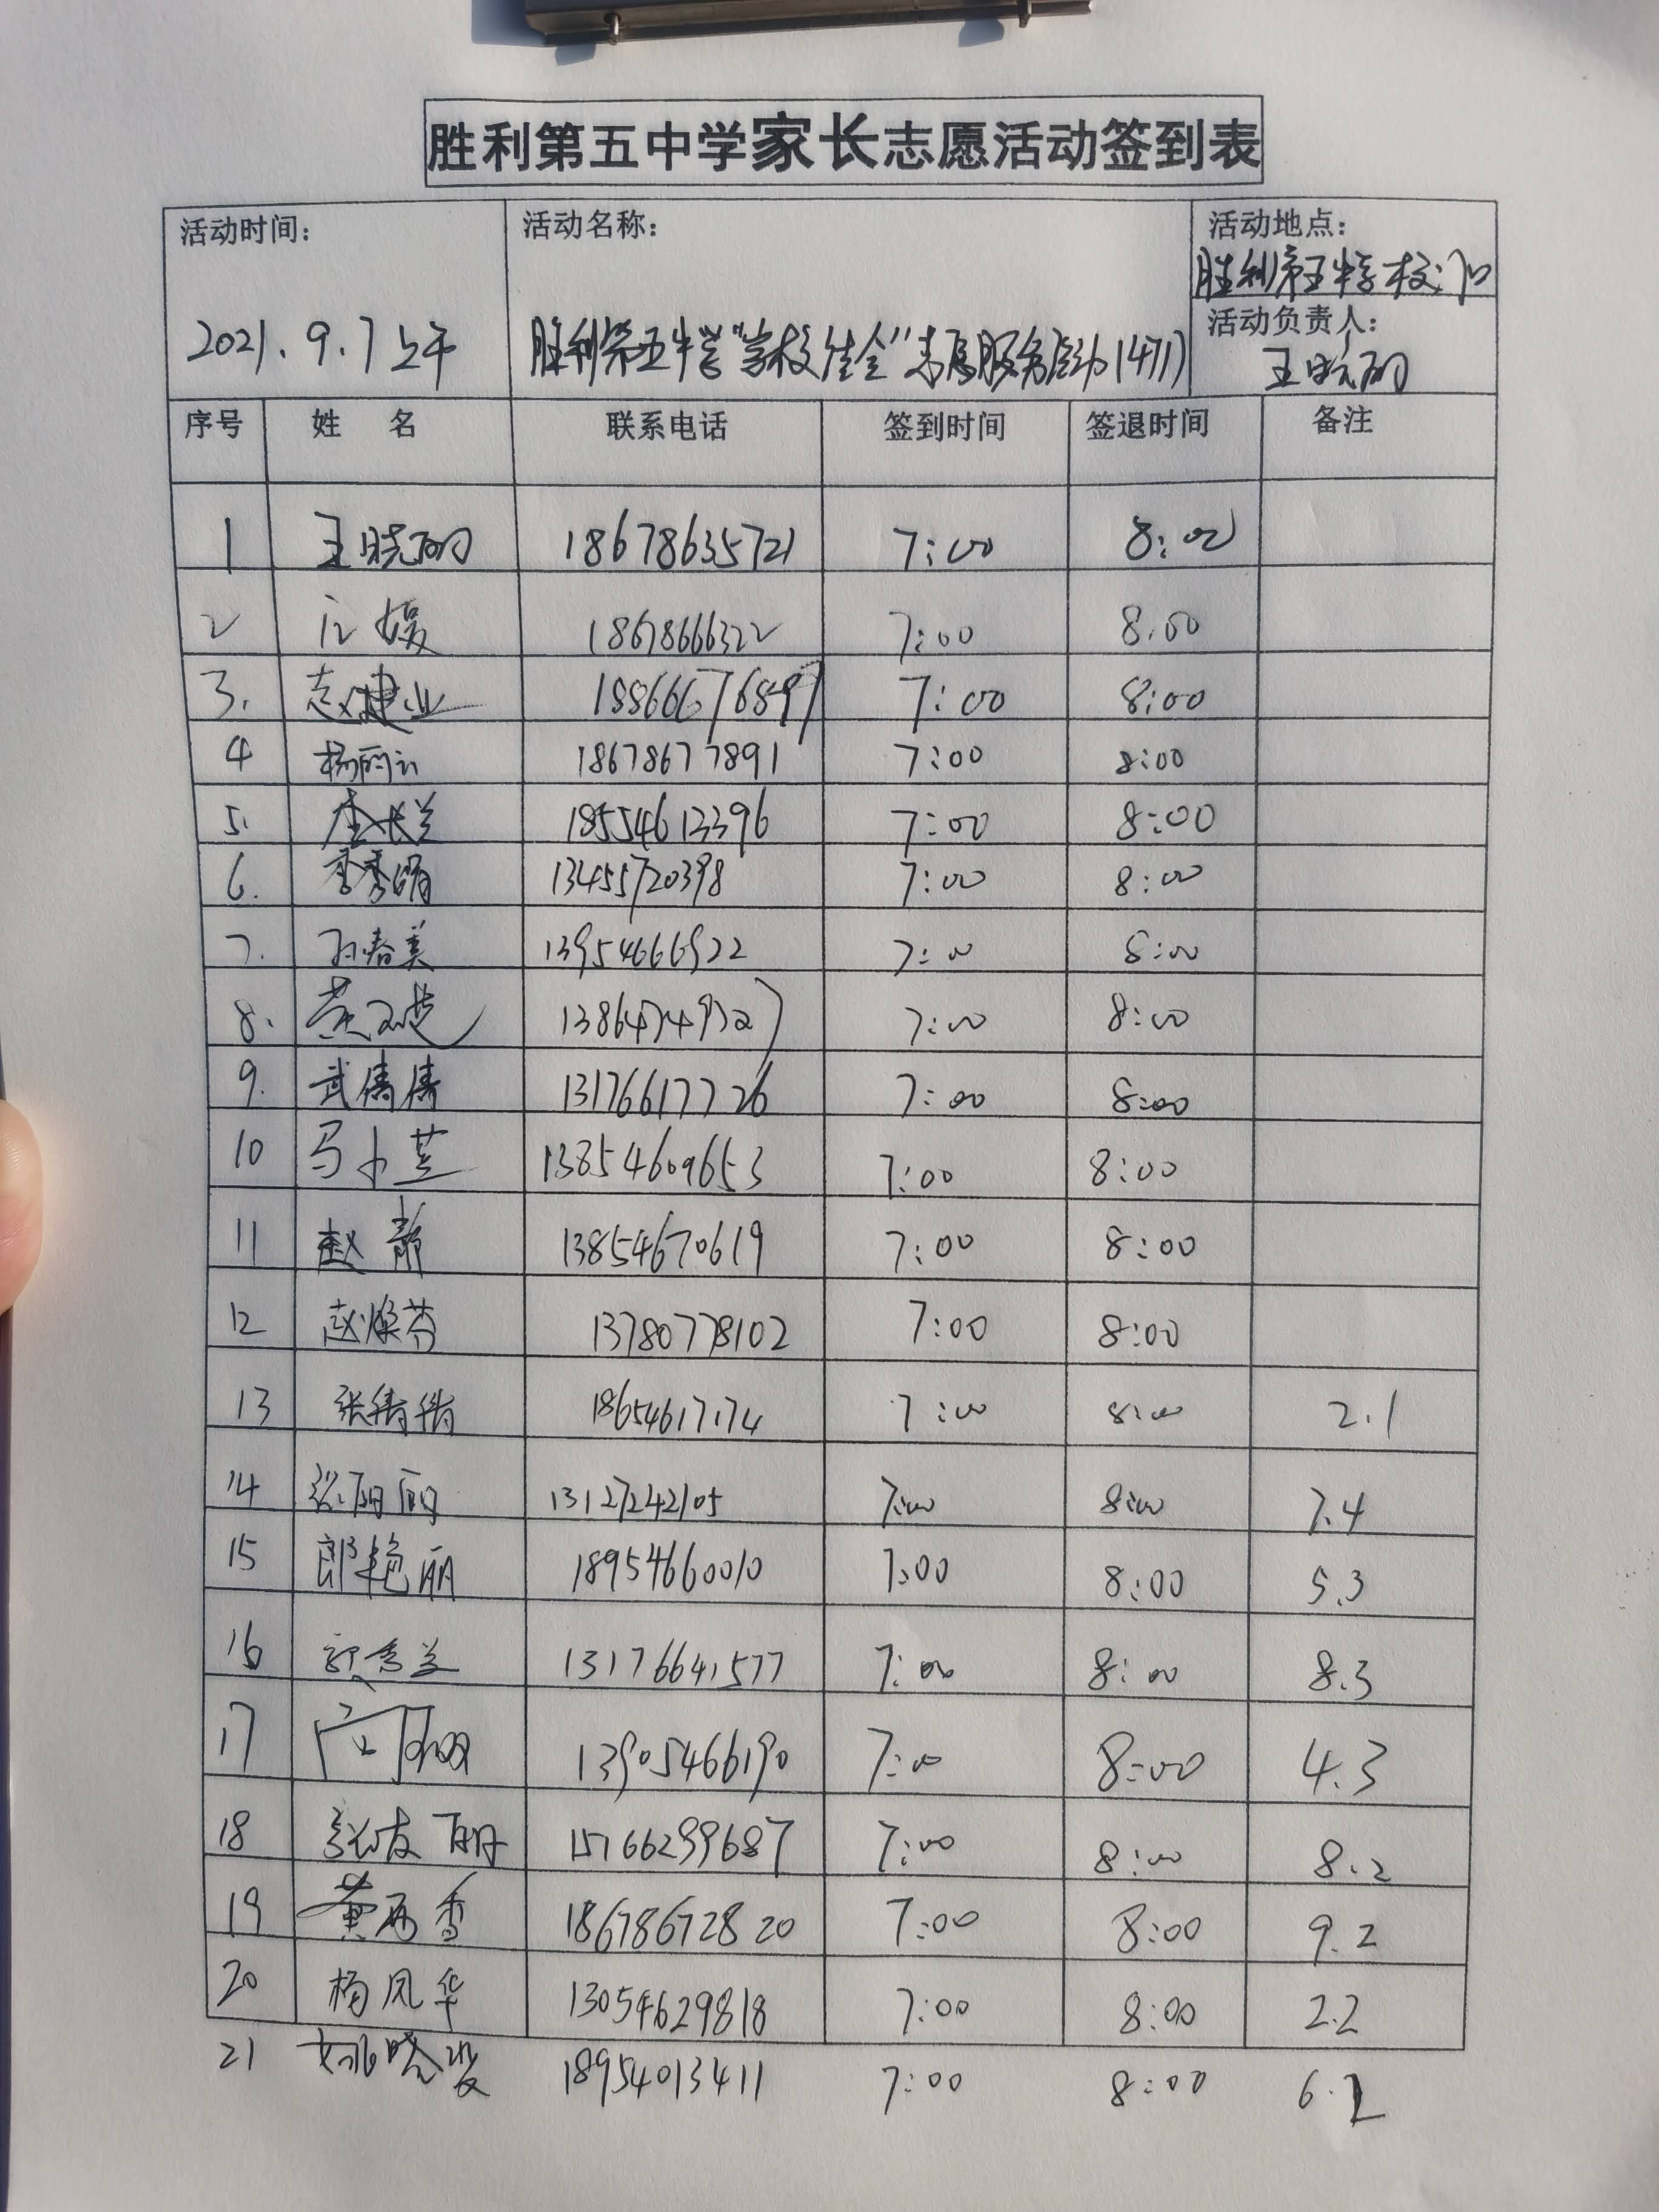 胜利第五中学家长志愿活动签到表
活动时间：
2021.9.7上午
活动名称：
胜利第五中学"学校安全"志愿服务活动(471)
活动地点：
胜利第五中学校门口
活动负责人：
王晓丽
序号 姓 名 联系电话 签到时间 签退时间 备注
1 王晓丽 18678635721 7:00 8:00
2 18678666322 7:00 8:00
3. 赵建业 18866676897 7:00 8:00
4 杨丽云 18678677891 7:00 8:00
5. 李长兰 18554613396 7:00 8:00
6. 李秀娟 13455720398 7:00 8:00
7. 孙春美 13954666922 7:00 8:00
8. 7:00 8:00
9. 武倩倩 13176617726 7:00 8:00
10 马小芸 13854609653 7:00 8:00
11 赵静 13854670619 7:00 8:00
12 赵焕芬 13780778102 7:00 8:00
13 张倩倩 18654617174 7:00 8:00 2.1
14 张丽丽 13127242105 7:00 8:00 7.4
15 郎艳丽 18954660010 7:00 8:00 5.3
16 郭秀兰 13176641577 7:00 8:00 8.3
17 13905466190 7:00 8:00 4.3
18 张友丽 15766299687 7:00 8:00 8.2
19 黄丽香 18678672820 7:00 8:00 9.2
20 杨凤华 13054629818 7:00 8:00 2.2
21 姚晓燕 18954013411 7:00 8:00 6.2